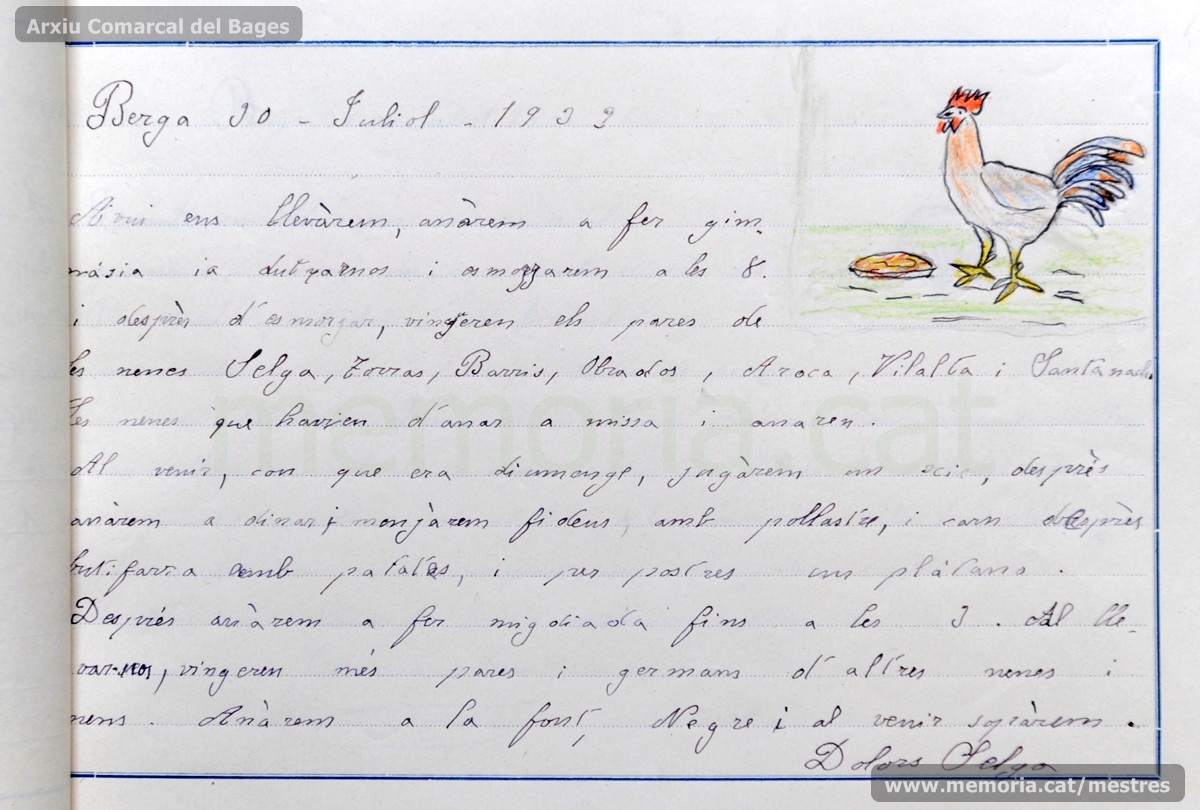 Arxiu Comarcal del Bages
Berga 30 - Juliol - 1933
Avui ens llevàrem, anàrem a fer gim-
násia ia dutxarnos i esmorzarem a les 8.
i desprès d'esmorzar, vingeren els pares de
les nenes Selga, Torras, Barris, Obrados, Aroca, Vilalta i Santanach
Les nenes que havien d'anar a missa i anaren.
Al venir, con que era diumenge, jugàrem un xic, desprès
anàrem a dinar i menjàrem fideus, amb pollastre, i carn desprès
butifarra amb patates, i per postres un plátano.
Després anàrem a fer migdiada fins a les 3. Al lle-
var-nos, vingeren més pares i germans d'altres nenes i
nens. Anàrem a la font, Negre i al venir sopàrem.
Dolors Selga
memoria.cat
www.memoria.cat/mestres